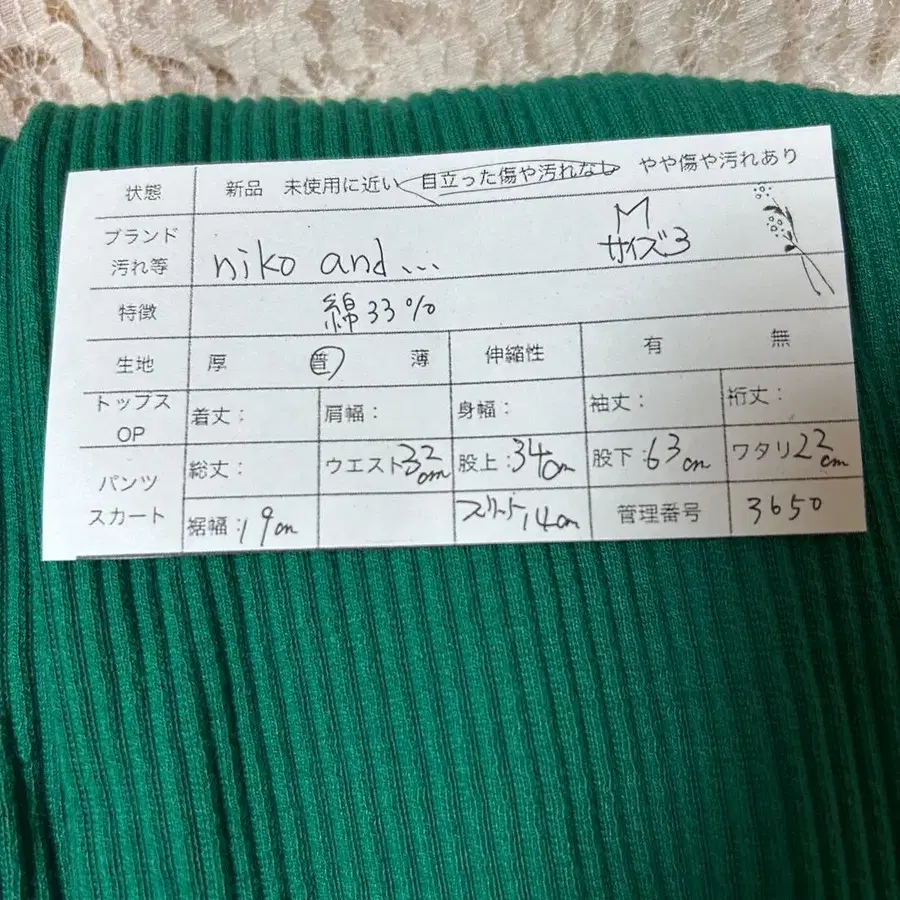 状態 新品 未使用に近い 目立った傷や汚れなし やや傷や汚れあり
ブランド
汚れ等 niko and... M サイズ3
特徴 綿33%
生地 厚 普 薄 伸縮性 有 無
トップス
OP 着丈: 肩幅: 身幅: 袖丈: 裄丈:
パンツ
スカート 総丈: ウエスト32cm 股上:34cm 股下:63cm ワタリ22cm
裾幅:19cm スリット14cm 管理番号 3650